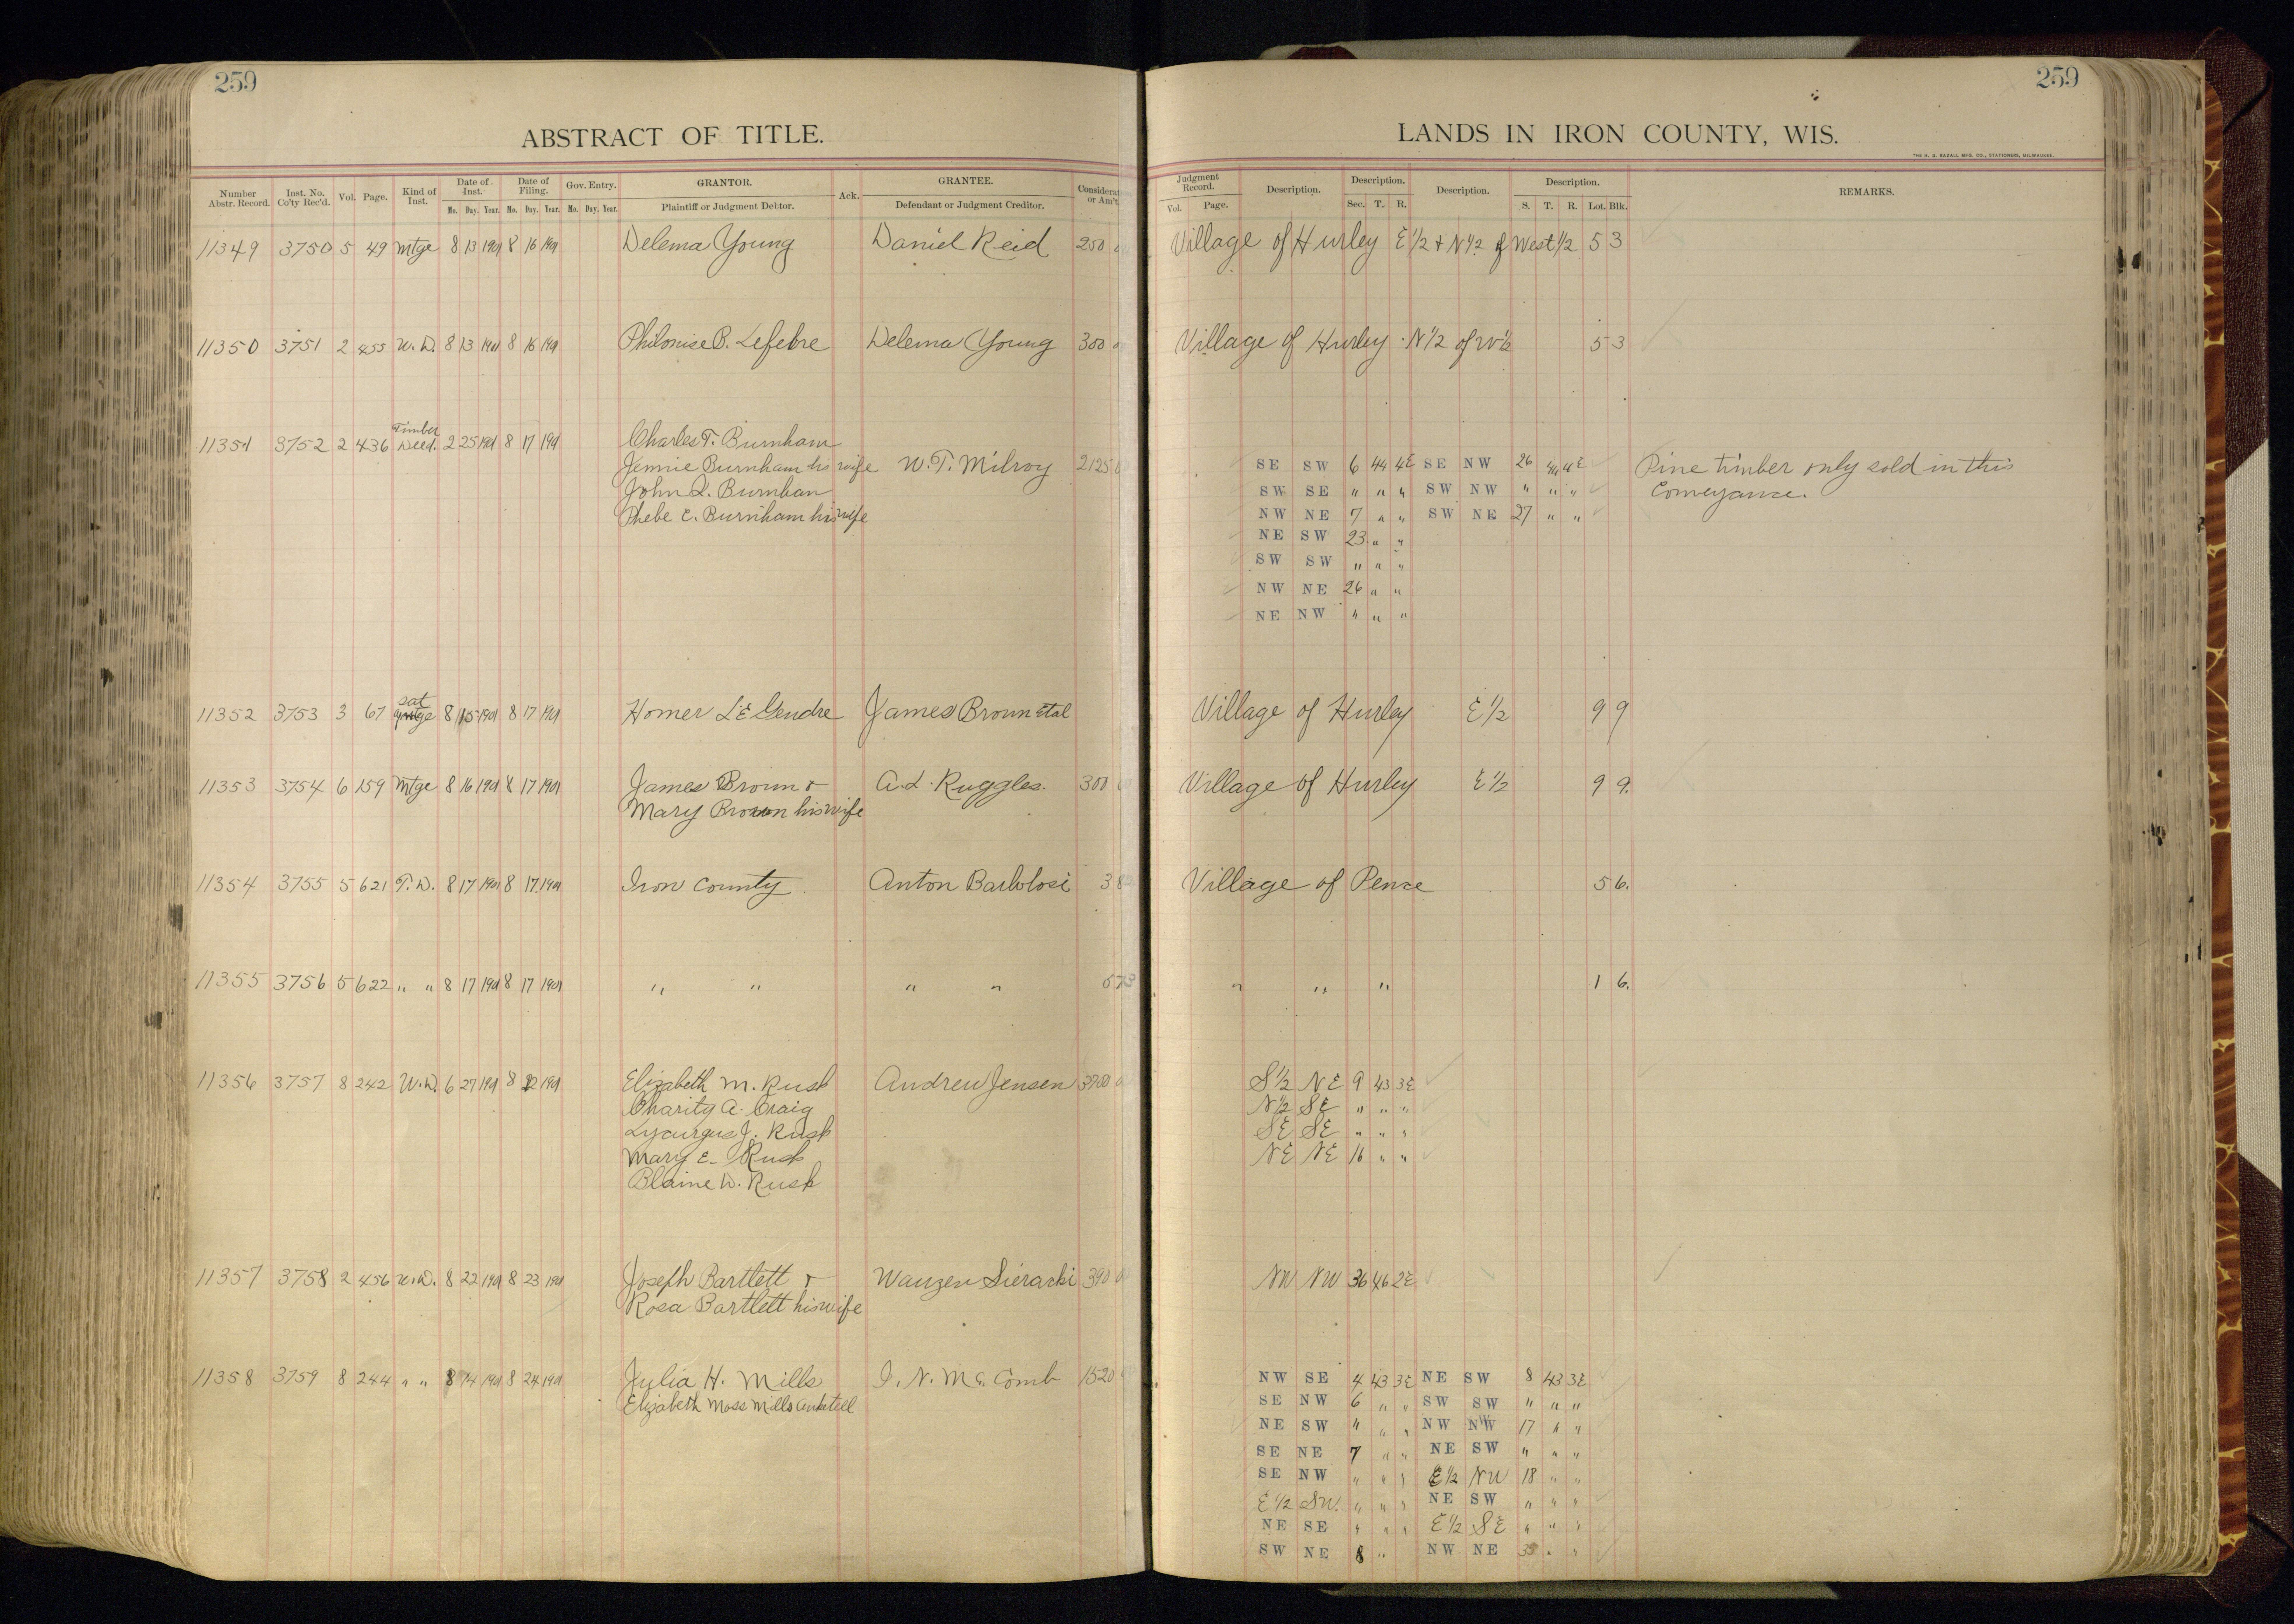 259
259
ABSTRACT OF TITLE.
LANDS IN IRON COUNTY, WIS.
THE H. G. RAZALL MFG. CO., STATIONERS, MILWAUKEE.
Number Abstr. Record. Inst. No. Co'ty Rec'd. Vol. Page. Kind of Inst. Date of Inst. Mo. Day. Year. Date of Filing. Mo. Day. Year. Gov. Entry. Mo. Day. Year. GRANTOR. Plaintiff or Judgment Debtor. Ack. GRANTEE. Defendant or Judgment Creditor. Considerat or Am't
Judgment Record. Vol. Page. Description. Description. Sec. T. R. Description. Description. S. T. R. Lot. Blk. REMARKS.
11349 3750 5 49 Mtge 8 13 1901 8 16 1901 Delema Young Daniel Reid 250 Village of Hurley E 1/2 & N 1/2 of West 1/2 5 3
11350 3751 2 455 W. D. 8 13 1901 8 16 1901 Philomise B. Lefebre Delema Young 300 Village of Hurley N 1/2 of W 1/2 5 3
Timber
11351 3752 2 436 Deed. 2 25 1901 8 17 1901 Charles T. Burnham
Jennie Burnham his wife W. T. Milroy 2125 SE SW 6 44 4E SE NW 26 44 4E Pine timber only sold in this
John Q. Burnham SW SE " " " SW NW " " " Conveyance.
Phebe E. Burnham his wife NW NE 7 " " SW NE 27 " "
NE SW 23 " "
SW SW " " "
NW NE 26 " "
NE NW " " "
Sat
11352 3753 3 67 mtge 8 15 1901 8 17 1901 Homer LeGendre James Brown Etal Village of Hurley E 1/2 9 9
11353 3754 6 159 Mtge 8 16 1901 8 17 1901 James Brown & A. L. Ruggles. 300 Village of Hurley E 1/2 9 9.
Mary Brown his wife
11354 3755 5 621 T. D. 8 17 1901 8 17 1901 Iron County Anton Barlolosi 3 Village of Pence 5 6.
11355 3756 5 622 " " 8 17 1901 8 17 1901 " " " " " " " 1 6.
11356 3757 8 242 W. D. 6 27 1901 8 1901 Elizabeth M. Rusk Andrew Jensen 3700 S 1/2 NE 9 43 3E
Charity A. Craig N 1/2 SE " " "
Lycurgus J. Rusk SE SE " " "
Mary E. Rusk NE NE 16 " "
Blaine D. Rusk
11357 3758 2 456 W. D. 8 22 1901 8 23 1901 Joseph Bartlett & Wauzen Sieracki 390 NW NW 36 46 2E
Rosa Bartlett his wife
11358 3759 8 244 " " 8 14 1901 8 24 1901 Julia H. Mills I. N. McComb 1520 NW SE 4 43 3E NE SW 8 43 3E
Elizabeth Moss Mills SE NW 6 " " SW SW " " "
NE SW " " " NW NW 17 " "
SE NE 7 " " NE SW " " "
SE NW " " " E 1/2 NW 18 " "
E 1/2 SW. " " " NE SW " " "
NE SE " " " E 1/2 SE " " "
SW NE 8 " NW NE " "